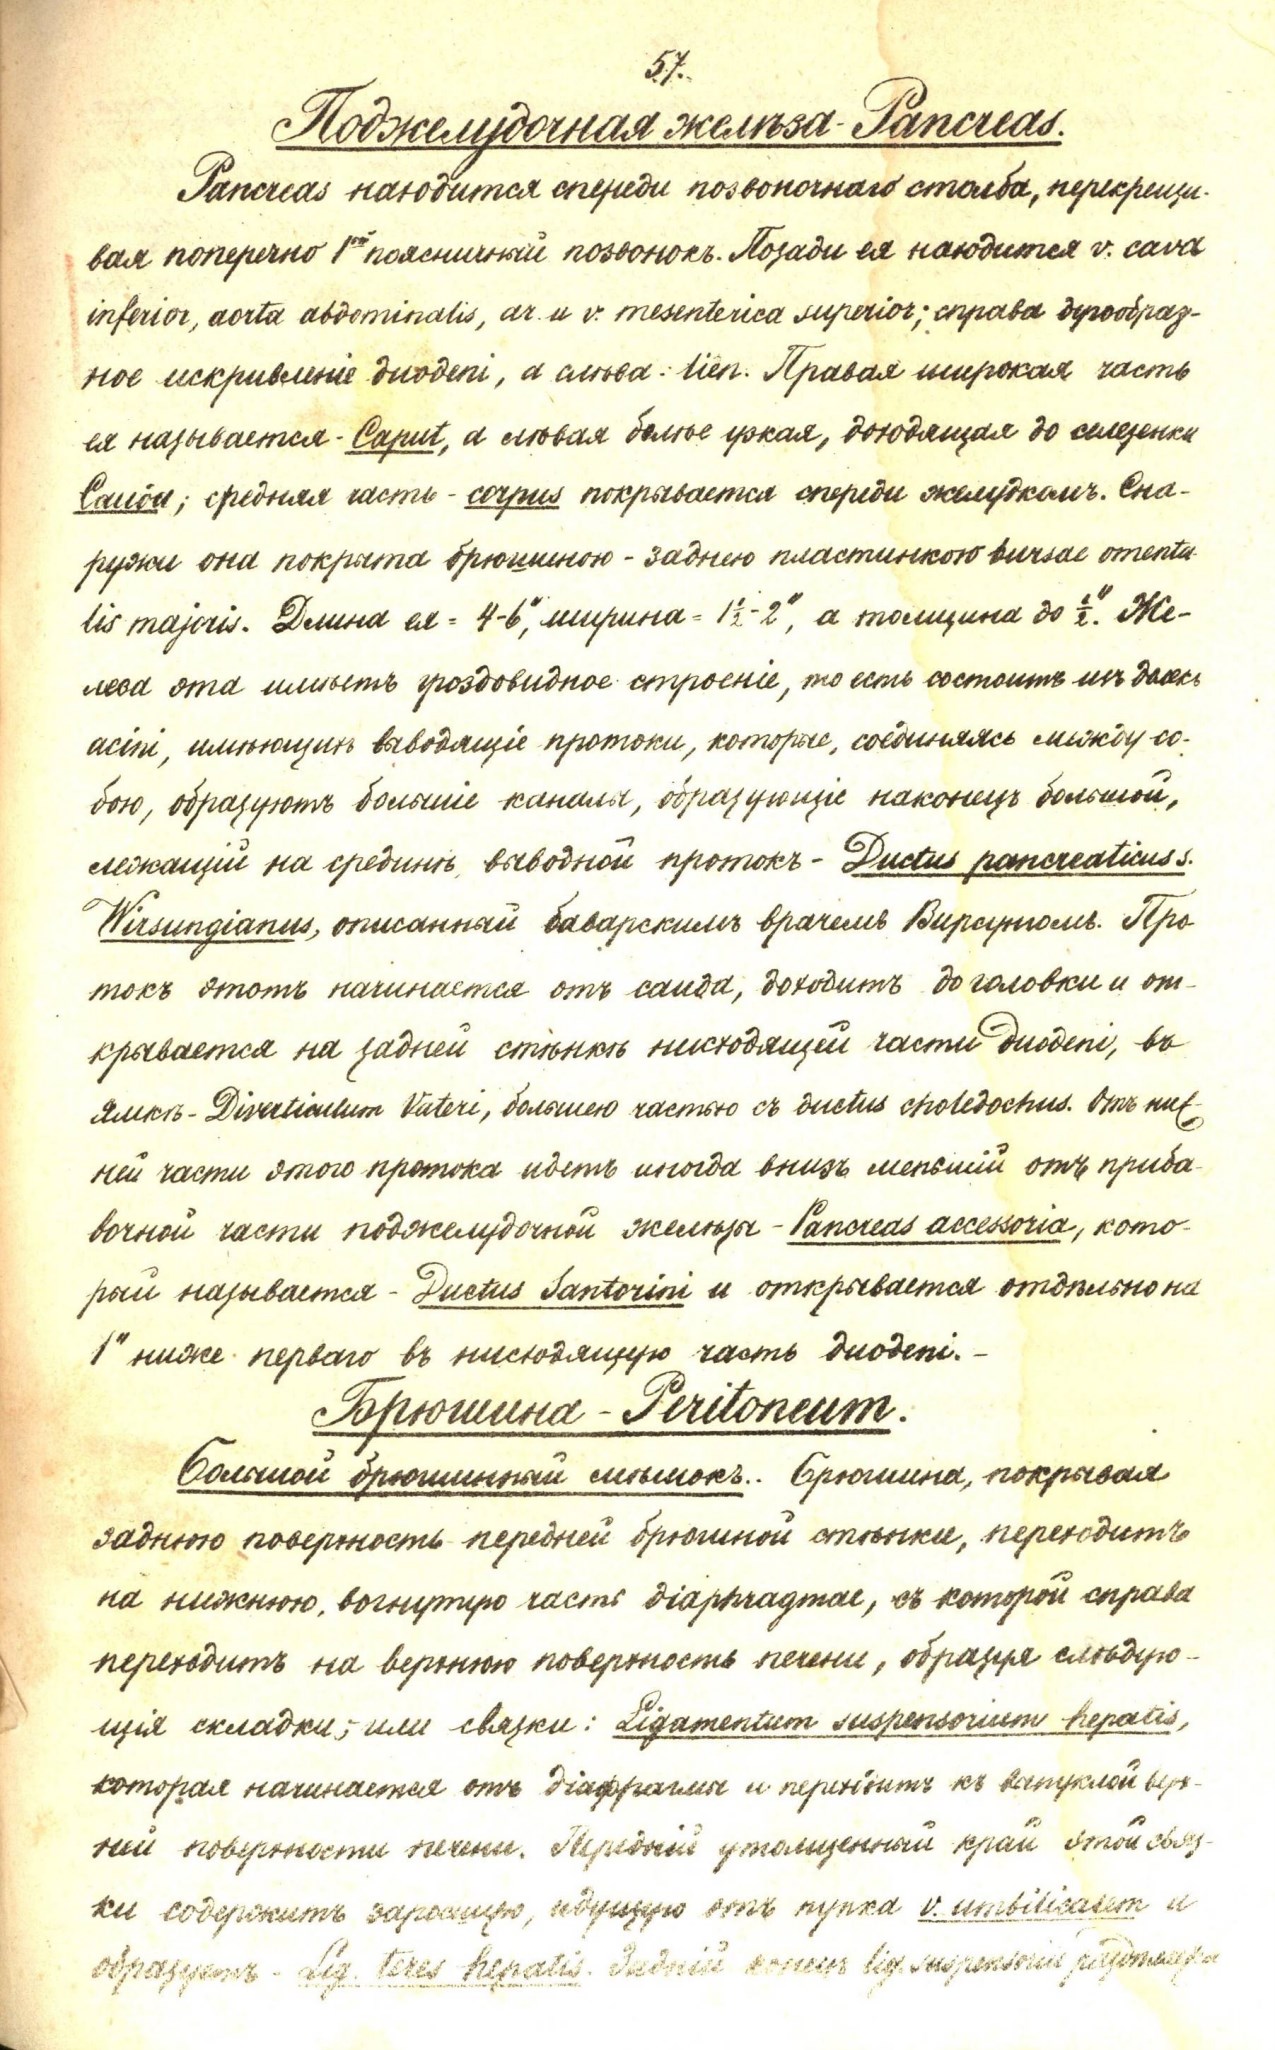 57.
Поджелудочная желѣза - Pancreas.
Pancreas находится спереди позвоночнаго столба, перекрещи-
вая поперечно 1ый поясничный позвонокъ. Позади ея находится v. cava
inferior, aorta abdominalis, ar. и v. mesenterica superior; справа дугообраз-
ное искривленіе duodeni, а слѣва - lien. Правая широкая часть
ея называется - Caput, а лѣвая болѣе узкая, доходящая до селезенки
Cauda; средняя часть - corpus покрывается спереди желудкомъ. Сна-
ружи она покрыта брюшиною - заднею пластинкою bursae omenta
lis majoris. Длина ея = 4-6", ширина = 1½-2", а толщина до ½". Же-
леза эта имѣетъ гроздовидное строеніе, то есть состоитъ изъ долекъ
acini, имѣющихъ выводящіе протоки, которые, соединяясь между со-
бою, образуютъ большіе каналы, образующіе наконецъ большой,
лежащій на срединѣ, выводной протокъ - Ductus pancreaticus s.
Wirsungianus, описанный баварскимъ врачемъ Вирсунгомъ. Про
токъ этотъ начинается отъ cauda, доходитъ до головки и от-
крывается на задней стѣнкѣ нисходящей части duodeni, въ
ямкѣ - Diverticulum Vateri, большею частью съ ductus choledochus. Отъ ниж-
ней части этого протока идетъ иногда внизъ меньшій отъ приба-
вочной части поджелудочной желѣзы - Pancreas accessoria, кото-
рый называется - Ductus Santorini и открывается отдѣльно на
1" ниже перваго въ нисходящую часть duodeni. -
Брюшина - Peritoneum.
Большой брюшинный мѣшокъ.. Брюшина, покрывая
заднюю поверхность передней брюшной стѣнки, переходитъ
на нижнюю, вогнутую часть diaphragmae, съ которой справа
переходитъ на верхнюю поверхность печени, образуя слѣдую-
щія складки; или связки: Ligamentum suspensorium hepatis,
которая начинается отъ діафрагмы и переходитъ къ выпуклой верх-
ней поверхности печени. Передній утолщенный край этой связ-
ки содержитъ заросшую, идущую отъ пупка v. umbilicalem и
образуетъ - Lig. teres hepatis. Задній конецъ lig. suspensorii